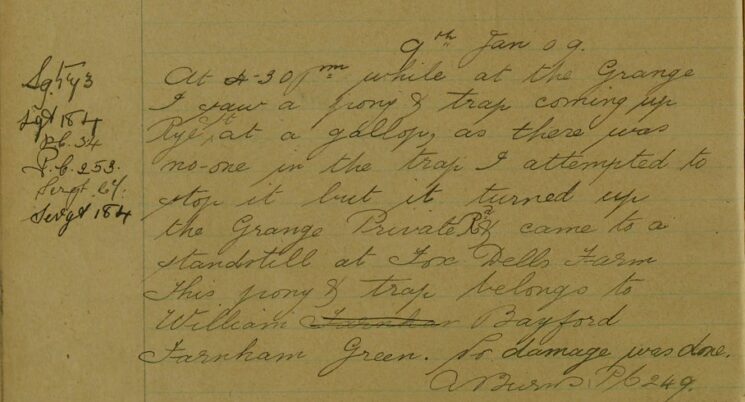 9th Jan 09.
Sgt 193
Sgt 184
P.C. 34
P.C. 253.
Sergt. 64.
Sergt 184
At 4-30 pm while at the Grange
I saw a pony & trap coming up
Rye St at a gallop, as there was
no-one in the trap I attempted to
stop it but it turned up
the Grange Private Rd & came to a
standstill at Fox Dells Farm
This pony & trap belongs to
William Farnham Bayford
Farnham Green. No damage was done.
A Burns P/C 249.